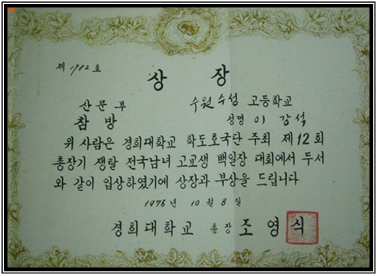 제 1982 호
상 장
산문부 수원수성 고등학교
참 방 성명 이 강 석
위 사람은 경희대학교 학도호국단 주최 제12회
총장기 쟁탈 전국남녀 고교생 백일장 대회에서 두서
와 같이 입상하였기에 상장과 부상을 드립니다
1976 년 10 월 8 일
경희대학교 총장 조영식